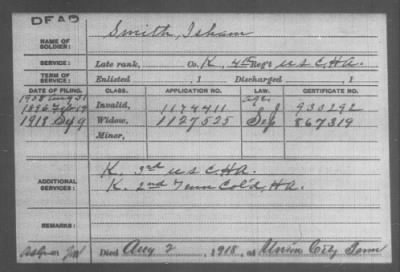 DEAD
NAME OF SOLDIER: Smith, Isham
SERVICE: Late rank, Co. K, 4th Reg't U S C, H A.
TERM OF SERVICE: Enlisted , 1 Discharged , 1
DATE OF FILING. CLASS. APPLICATION NO. LAW. CERTIFICATE NO.
Invalid, 1174411 930292
1918 Widow, 1127525 867319
Minor,
ADDITIONAL SERVICES: K. 3rd U S C, H A.
K. 2nd Tenn Col'd, H A.
REMARKS:
Died Aug 2, 1918, at Union City Tenn